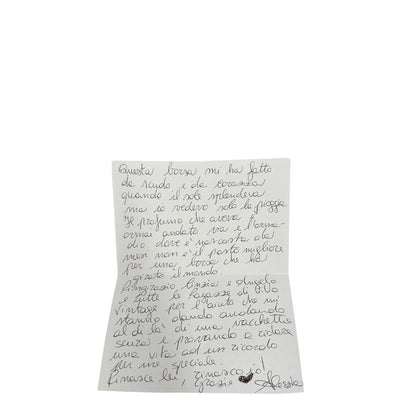 Questa borsa mi ha fatto
da scudo e da corazza
quando il sole splendeva
ma io vedevo solo la pioggia
Il profumo che aveva
ormai andato via e l'arma-
dio dove è nascosta da
mesi non è il posto migliore
per una borsa che ha
girato il mondo.
Ringrazio Cinzia e Angelo
e tutte le ragazze di
Vintage per l'aiuto che mi
stanno dando andando
al di là di una
senza e provando a ridare
una vita ad un ricordo
per me speciale.
Rinasce lei, rinasco io!
Grazie